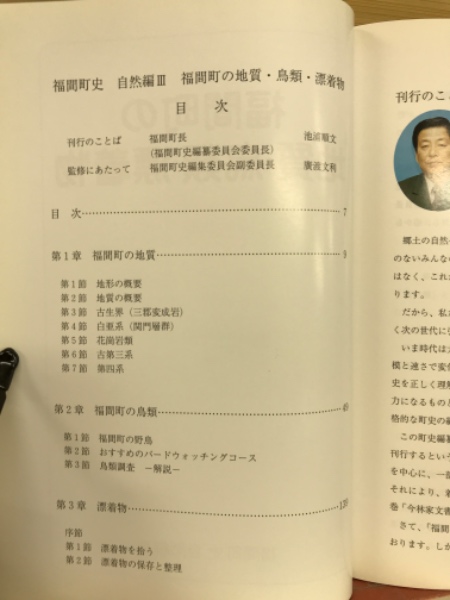 福間町史 自然編Ⅲ 福間町の地質・鳥類・漂着物
目 次
刊行のことば 福間町長 池浦順文
(福間町史編纂委員会委員長)
監修にあたって 福間町史編集委員会副委員長 廣渡文利
目 次……7
第1章 福間町の地質……9
第1節 地形の概要
第2節 地質の概要
第3節 古生界(三郡変成岩)
第4節 白亜系(関門層群)
第5節 花崗岩類
第6節 古第三系
第7節 第四系
第2章 福間町の鳥類……49
第1節 福間町の野鳥
第2節 おすすめのバードウォッチングコース
第3節 鳥類調査 −解説−
第3章 漂着物……
序節
第1節 漂着物を拾う
第2節 漂着物の保存と整理
刊行のこ
郷土の自然
のないみんな
はなく、これ
ります。
だから、私
く次の世代に
いま時代は
模と速さで変
史を正しく理解
力になるもの
格的な町史の編
この町史編
刊行するという
を中心に、一部
それにより、
巻「今林家文書
さて、「福間
おります。しか